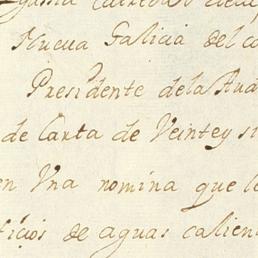 Nueva Galicia del
Presidente dela
de Carta de Veintey si
en Una nomina que le
de aguas calien